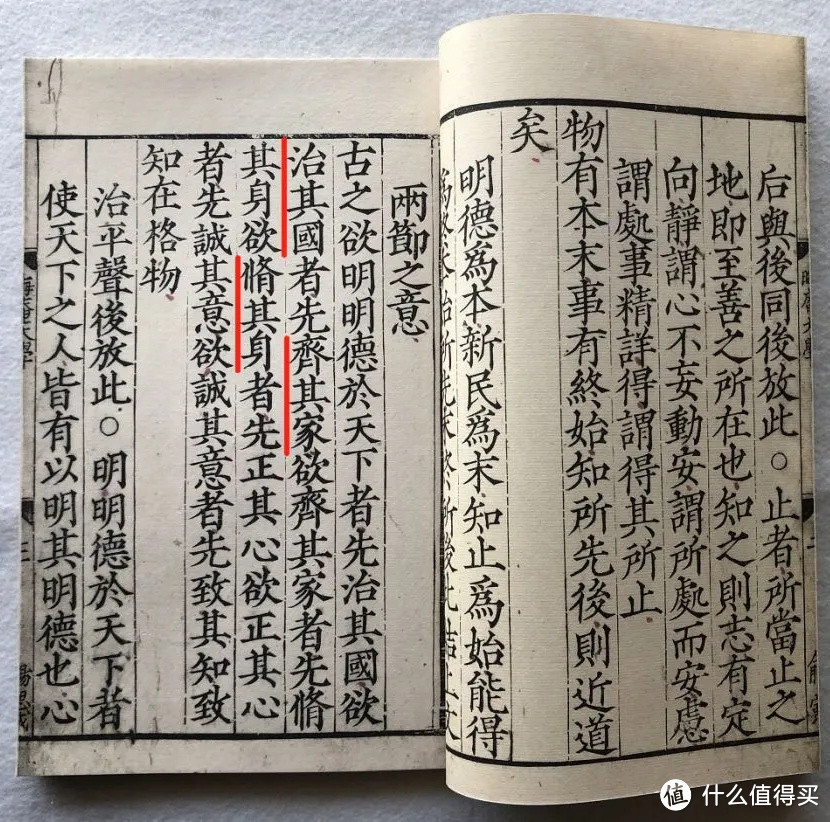 后與後同後放此○止者所當止之
地即至善之所在也知之則志有定
向靜謂心不妄動安謂所處而安慮
謂處事精詳得謂得其所止
物有本末事有終始知所先後則近道
矣
明德爲本新民爲末知止爲始能得
爲終本始所先末終所後此結上文
兩節之意
古之欲明明德於天下者先治其國欲
治其國者先齊其家欲齊其家者先脩
其身欲脩其身者先正其心欲正其心
者先誠其意欲誠其意者先致其知致
知在格物
治平聲後放此○明明德於天下者
使天下之人皆有以明其明德也心
值 什么值得买